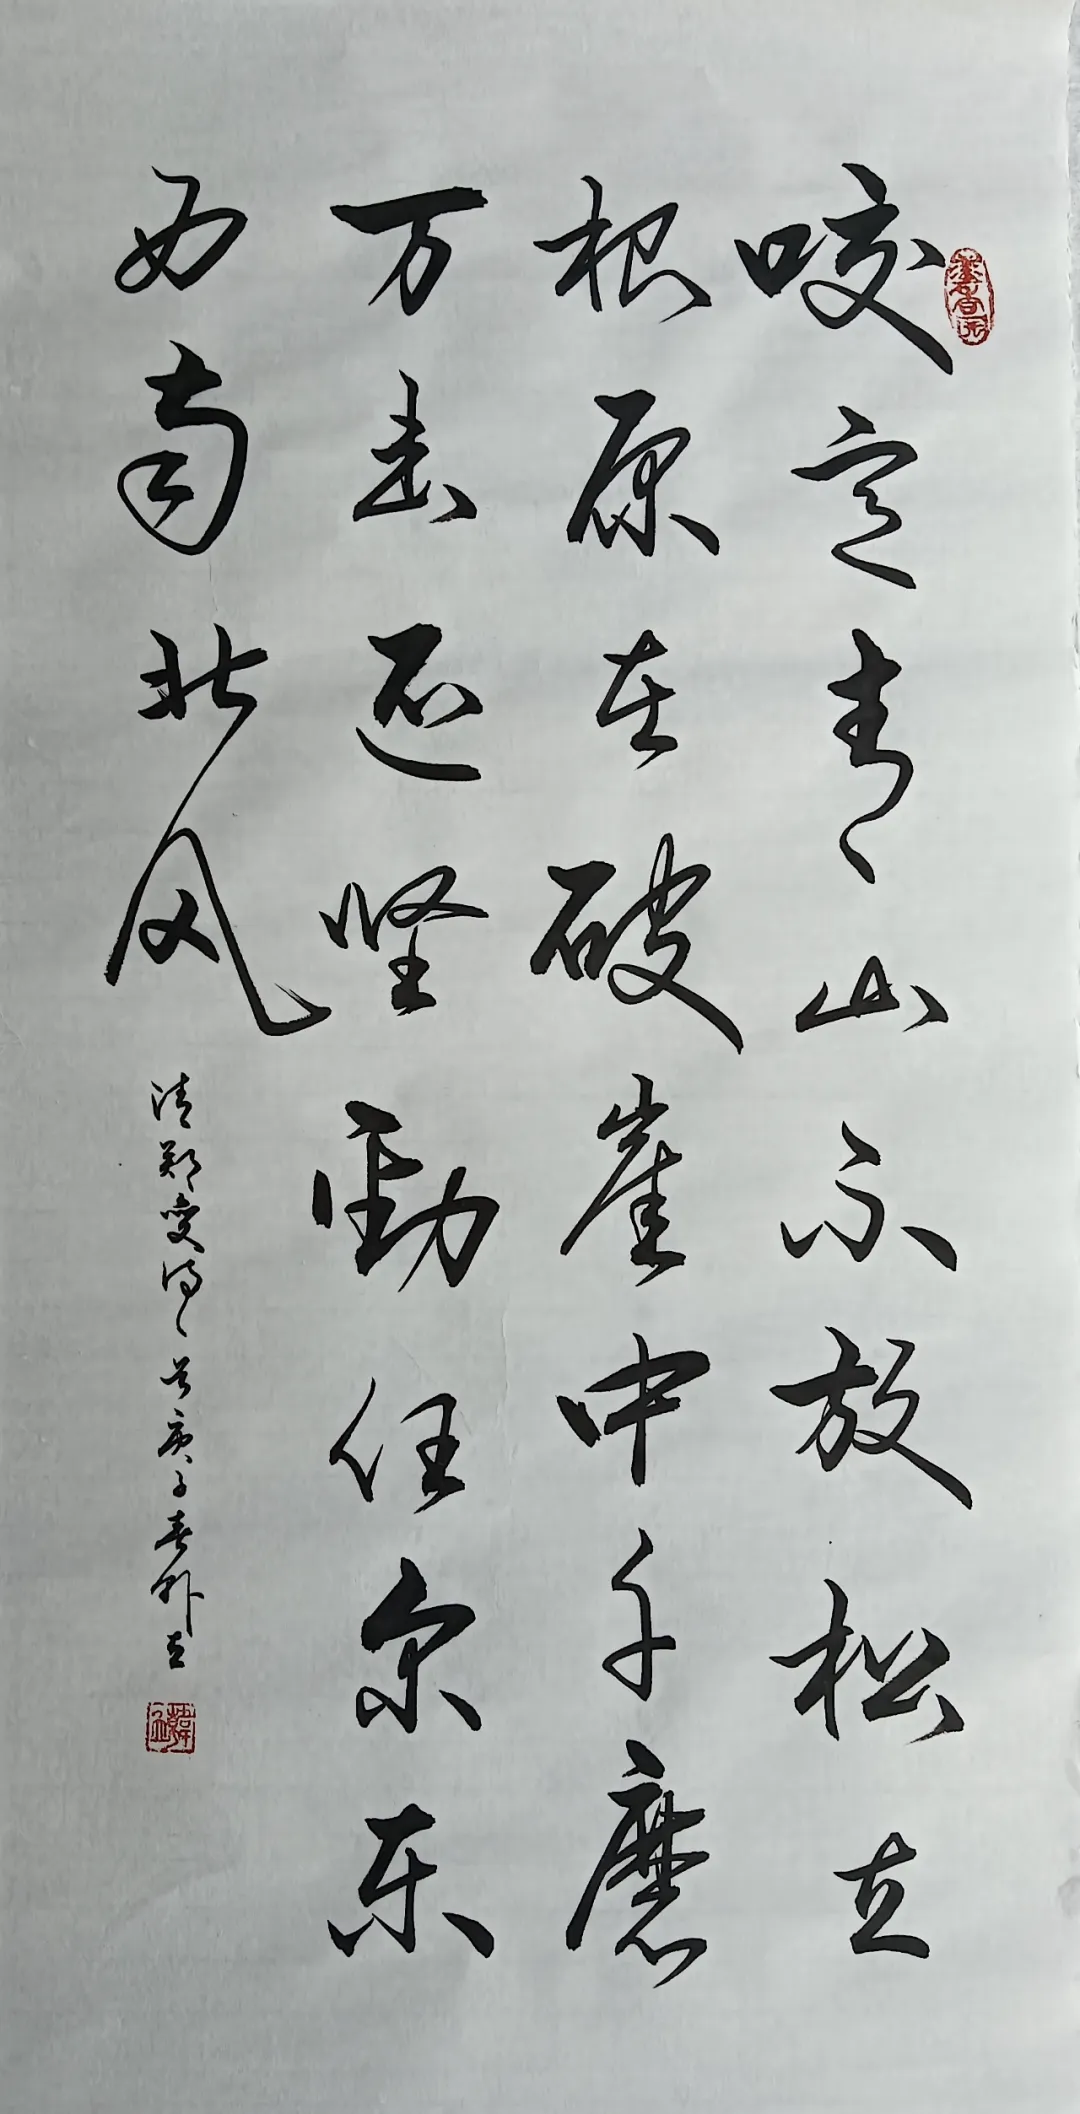 咬定青山不放松立
根原在破崖中千磨
万击还坚劲任尔东
西南北风
清郑燮诗 庚子春